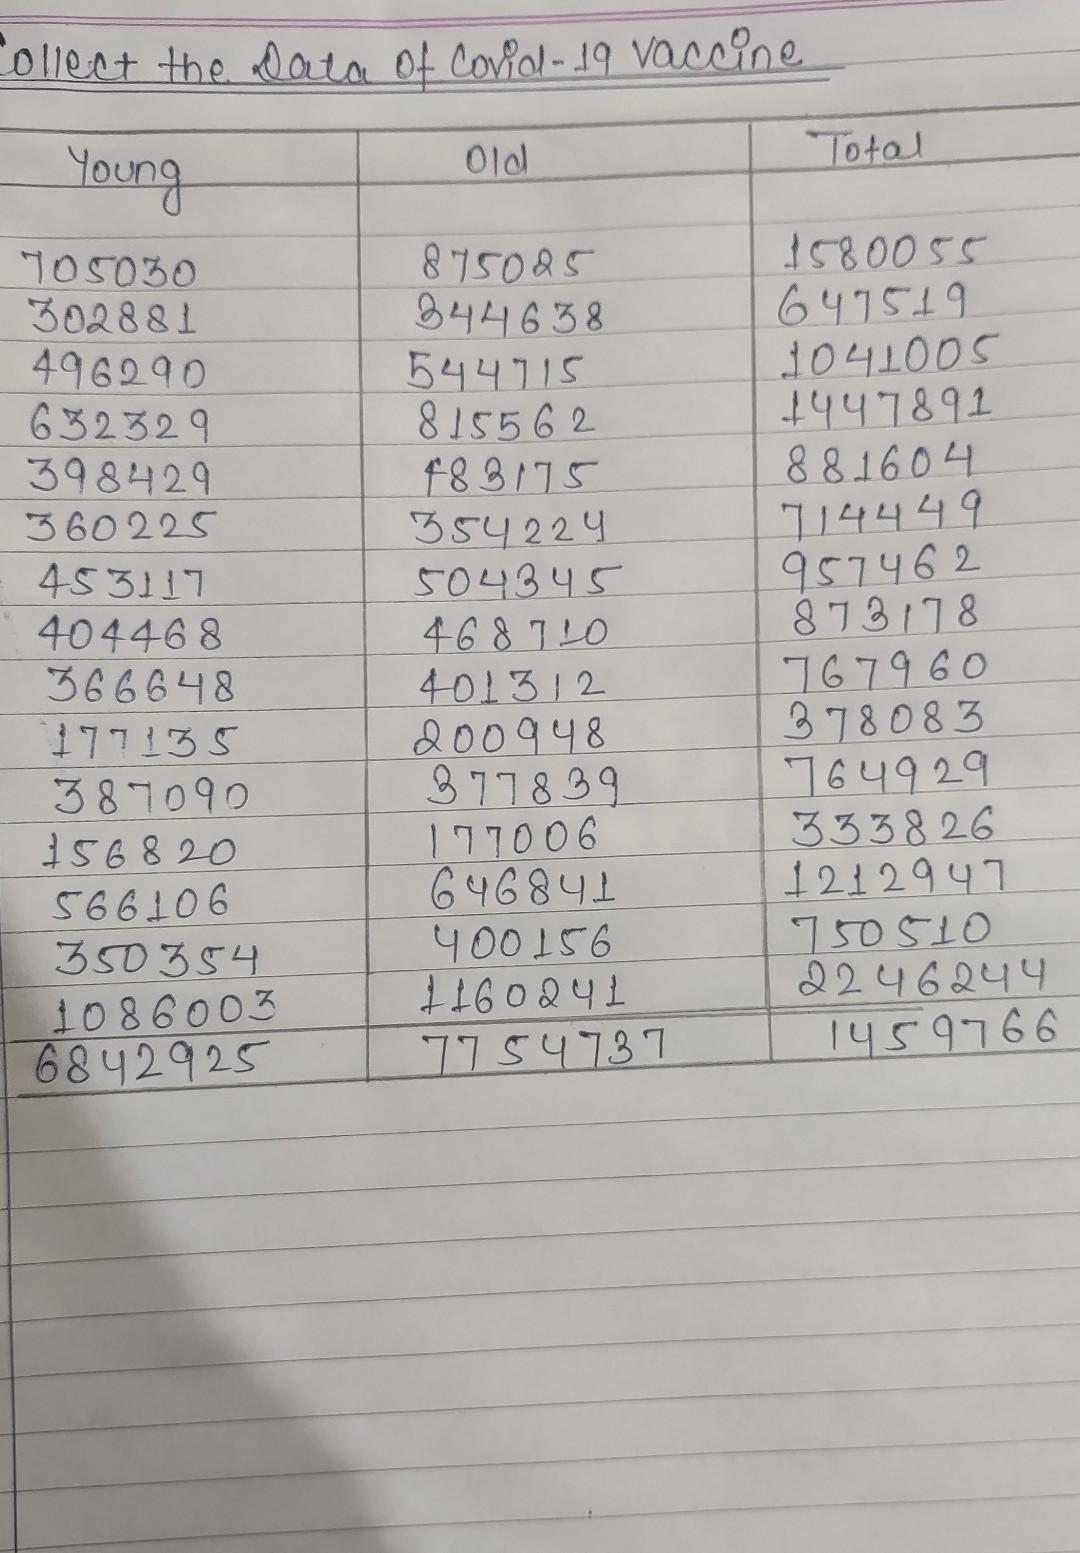 Collect the Data of Covid-19 vaccine
Young Old Total
705030 875025 1580055
302881 344638 647519
496290 544715 1041005
632329 815562 1447891
398429 483175 881604
360225 354224 714449
453117 504345 957462
404468 468710 873178
366648 401312 767960
177135 200948 378083
387090 377839 764929
156820 177006 333826
566106 646841 1212947
350354 400156 750510
1086003 1160241 2246244
6842925 7754737 1459766